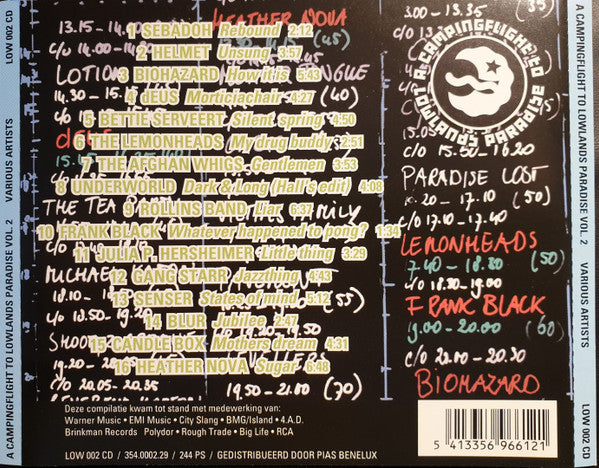 LOW 002 CD
VARIOUS ARTISTS
A CAMPINGFLIGHT TO LOWLANDS PARADISE VOL. 2
13.15 -
HEATHER NOVA
(45)
C/O 14.00 -
LOTION
14.30 - 15.
(40)
THE TEA
MICHAE
18.10 -
(55)
C/O 18.50 - 19.20
19.20 -
C/O 20.05 - 20.35
19.50 - 21.00 (70)
1 SEBADOH Rebound 2:12
2 HELMET Unsung 3:57
3 BIOHAZARD How it is 5:43
4 dEUS Morticiachair 4:27
5 BETTIE SERVEERT Silent spring 4:50
6 THE LEMONHEADS My drug buddy 2:51
7 THE AFGHAN WHIGS Gentlemen 3:53
8 UNDERWORLD Dark & Long (Hall's edit) 4:08
9 ROLLINS BAND Liar 6:37
10 FRANK BLACK Whatever happened to pong? 1:34
11 JULIA P. HERSHEIMER Little thing 3:29
12 GANG STARR Jazzthing 4:43
13 SENSER States of mind 5:12
14 BLUR Jubilee 2:47
15 CANDLE BOX Mothers dream 4:31
16 HEATHER NOVA Sugar 6:48
3.00 - 13.35 (35)
A CAMPINGFLIGHT TO
LOWLANDS PARADISE
15.05
C/O 15.50 - 16.20
PARADISE LOST
16.20 - 17.10 (50)
C/O 17.10 - 17.40
LEMONHEADS
17.40 - 18.30 (50)
C/O 18.30 - 19.00
FRANK BLACK
19.00 - 20.00 (60)
C/O 20.00 - 20.30
BIOHAZARD
Deze compilatie kwam tot stand met medewerking van:
Warner Music • EMI Music • City Slang • BMG/Island • 4.A.D.
Brinkman Records Polydor • Rough Trade • Big Life • RCA
LOW 002 CD / 354.0002.29 / 244 PS / GEDISTRIBUEERD DOOR PIAS BENELUX
5 413356 966121
A CAMPINGFLIGHT TO LOWLANDS PARADISE VOL. 2
VARIOUS ARTISTS
LOW 002 CD